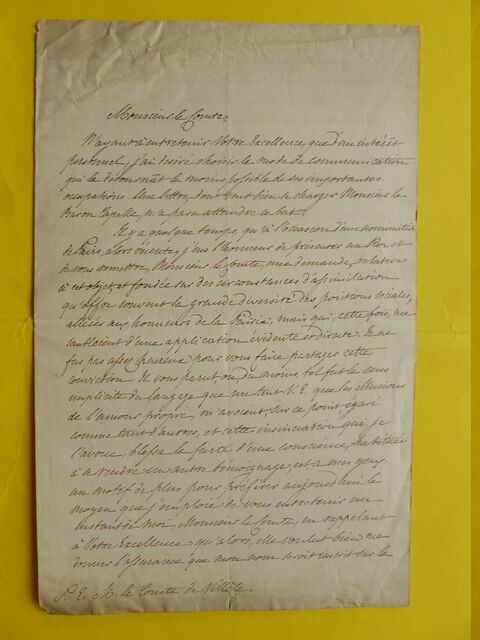 Monsieur le Comte,
N'ayant à entretenir Votre Excellence, que d'un intérêt
personnel, j'ai désiré choisir le mode de communication
qui le détournât le moins possible de ses importantes
occupations. Une lettre, dont veut bien se charger Monsieur le
Baron Capelle, m'a paru atteindre ce but.
Il y a quelque temps, qu'à l'occasion d'une nomination
de Pairs, alors j'eus l'honneur de présenter au Roi et
de vous soumettre, Monsieur le Comte, une demande, relative
à cet objet, et fondée sur des circonstances d'assimilation
qu'offre souvent la grande diversité des positions sociales,
alliées aux honneurs de la Pairie, mais qui, cette fois, me
d'une application évidente et directe. Je ne
fus pas assez heureux pour vous faire partager cette
conviction. Il vous parut ou du moins, tel fut le sens
implicite du langage que me tint V. E. que les illusions
de l'amour propre, m'avoient, sur ce point, égaré
comme tant d'autres, et cette insinuation qui, je
l'avoue, blessa la fierté d'une conscience, habituée
à se rendre un autre témoignage, est à mes yeux,
un motif de plus pour préférer aujourd'hui le
moyen que j'emploie de vous entretenir un
instant de moi, Monsieur le Comte, en rappelant
à Votre Excellence qu'alors, elle voulut bien me
donner l'assurance que mon nom seroit inscrit sur la
S. E. M. le Comte de Villèle.